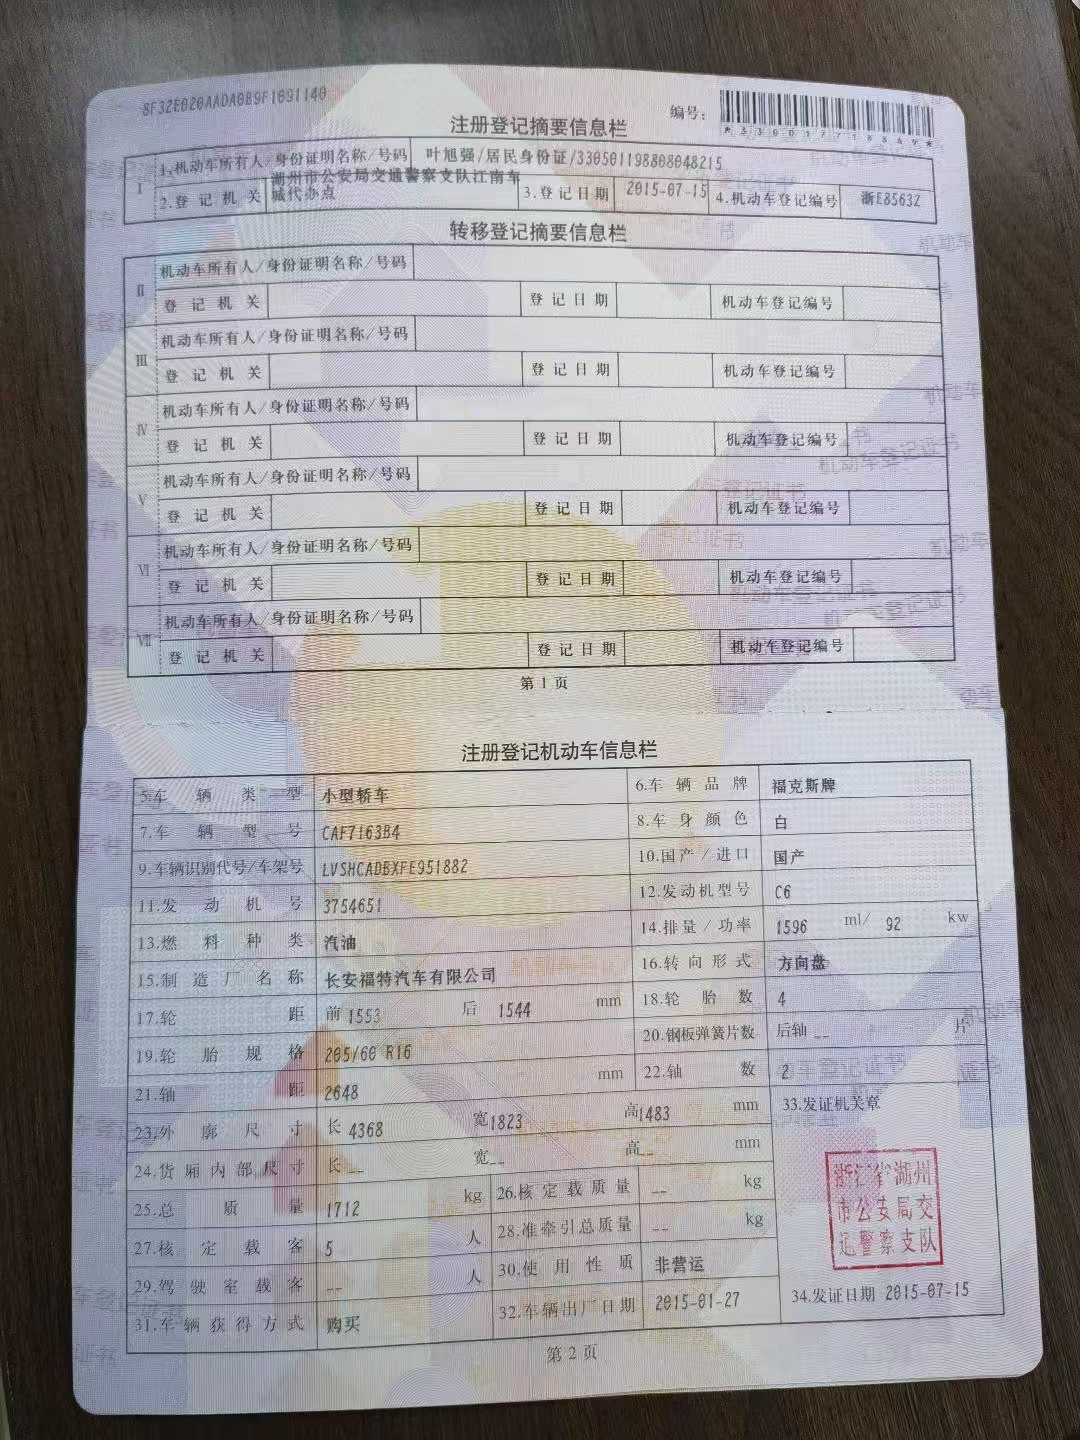 8F32E020AADA0B9F1691140
编号：
*330017718869*
注册登记摘要信息栏
I
1.机动车所有人/身份证明名称/号码 叶旭强/居民身份证/330501198808048215
2.登记机关 湖州市公安局交通警察支队江南车城代办点 3.登记日期 2015-07-15 4.机动车登记编号 浙E8563Z
转移登记摘要信息栏
II
机动车所有人/身份证明名称/号码
登记机关 登记日期 机动车登记编号
III
机动车所有人/身份证明名称/号码
登记机关 登记日期 机动车登记编号
IV
机动车所有人/身份证明名称/号码
登记机关 登记日期 机动车登记编号
V
机动车所有人/身份证明名称/号码
登记机关 登记日期 机动车登记编号
VI
机动车所有人/身份证明名称/号码
登记机关 登记日期 机动车登记编号
VII
机动车所有人/身份证明名称/号码
登记机关 登记日期 机动车登记编号
第1页
注册登记机动车信息栏
5.车辆类型 小型轿车 6.车辆品牌 福克斯牌
7.车辆型号 CAF7163B4 8.车身颜色 白
9.车辆识别代号/车架号 LVSHCADBXFE951882 10.国产/进口 国产
11.发动机号 3754651 12.发动机型号 C6
13.燃料种类 汽油 14.排量/功率 1596 ml/ 92 kw
15.制造厂名称 长安福特汽车有限公司 16.转向形式 方向盘
17.轮距 前 1553 后 1544 mm 18.轮胎数 4
19.轮胎规格 205/60 R16 20.钢板弹簧片数 后轴 -- 片
21.轴距 2648 mm 22.轴数 2
23.外廓尺寸 长 4368 宽 1823 高 1483 mm 33.发证机关章
24.货厢内部尺寸 长 -- 宽 -- 高 -- mm
25.总质量 1712 kg 26.核定载质量 -- kg
27.核定载客 5 人 28.准牵引总质量 -- kg
29.驾驶室载客 -- 人 30.使用性质 非营运
浙江省湖州
市公安局交
巡警察支队
31.车辆获得方式 购买 32.车辆出厂日期 2015-01-27 34.发证日期 2015-07-15
第2页